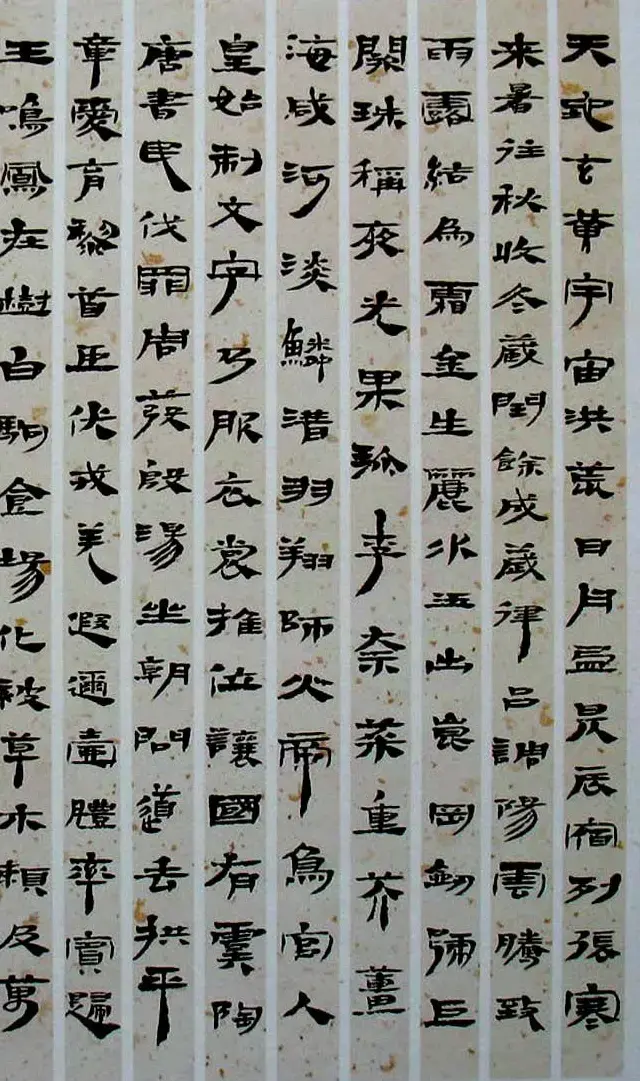 天地玄黄宇宙洪荒日月盈昃辰宿列張寒
来暑往秋收冬藏閏餘成歲律吕調陽雲騰致
雨露結為霜金生麗水玉出崑岡劒號巨
闕珠稱夜光果珍李柰菜重芥薑
海咸河淡鱗潛羽翔師火帝鳥官人
皇始制文字乃服衣裳推位讓國有虞陶
唐書民伐罪周發殷湯坐朝問道去拱平
章愛育黎首臣伏戎羌遐邇壹體率賓歸
王鳴鳳在樹白駒食場化被草木賴及萬